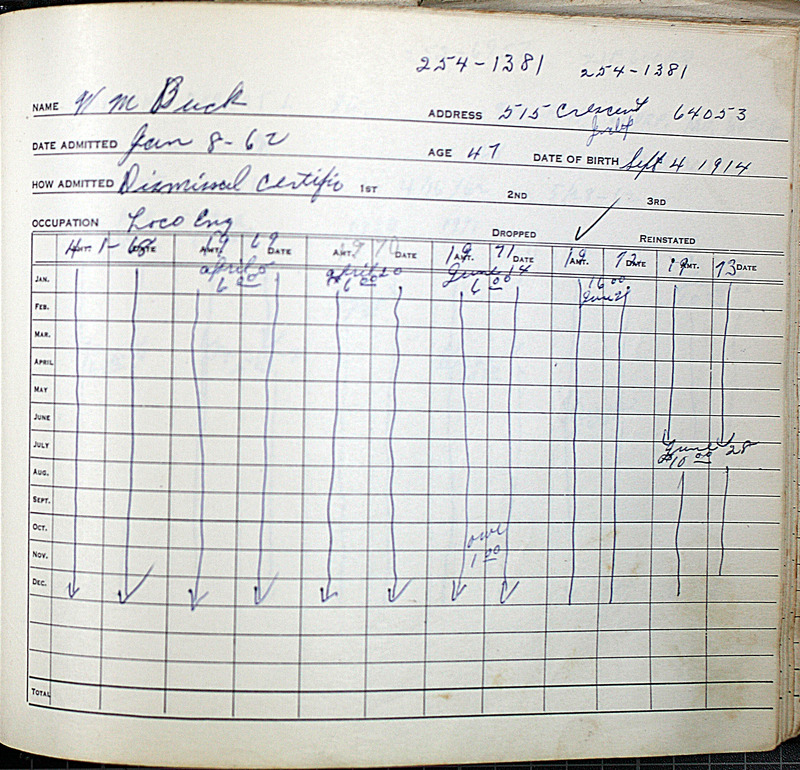 254-1381 254-1381
NAME W M Buck ADDRESS 515 Crescent 64053
DATE ADMITTED Jan 8-62 AGE 47 DATE OF BIRTH Sept 4 1914
HOW ADMITTED Dismissal Certific 1ST 2ND 3RD
OCCUPATION Loco Eng DROPPED REINSTATED
AMT. DATE AMT. DATE AMT. DATE AMT. DATE AMT. DATE AMT. DATE
1- 68 19 69 19 70 19 71 19 72 19 73
JAN. April 5 April 20 June 14 16 00
6 00 6 00 6 00 June 21
FEB.
MAR.
APRIL
MAY
JUNE
JULY June 28
10 00
AUG.
SEPT.
OCT. owe
NOV. 1 00
DEC.
TOTAL